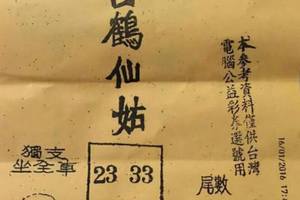 本參考資料僅供台灣
電腦公益彩券選號用
白鶴仙姑
獨支
坐全車
23 33
尾數